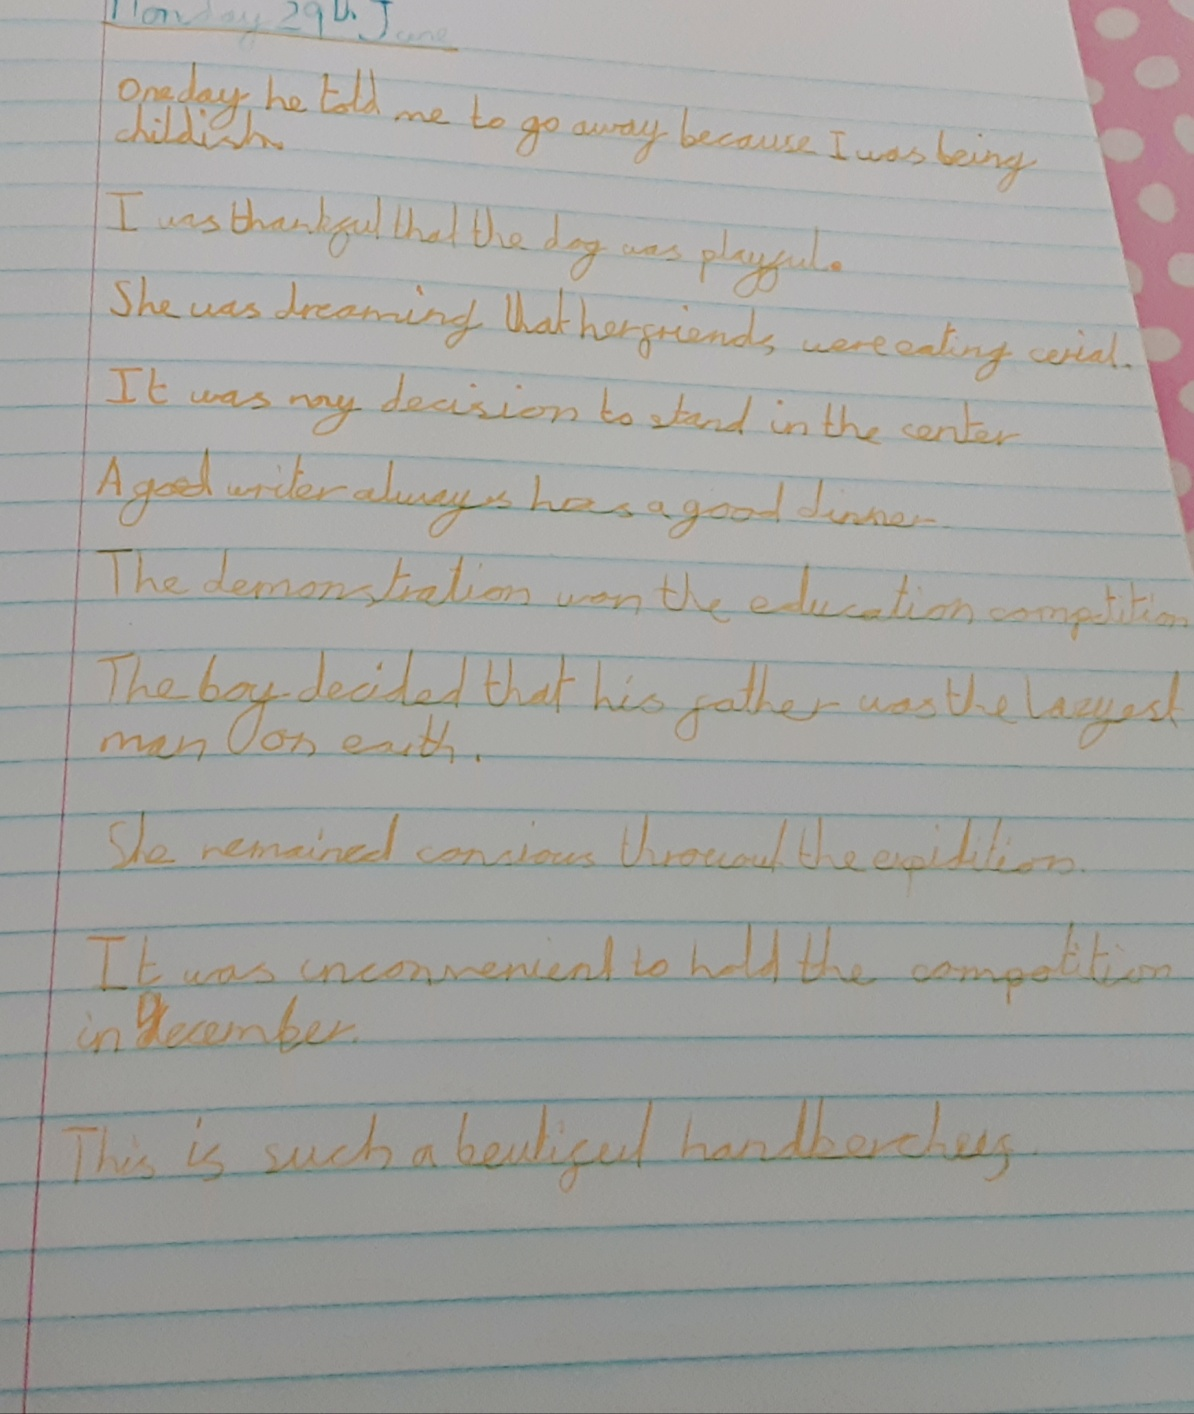 Monday 29th June
One day he told me to go away because I was being
childish.
I was thankful that the dog was playful.
She was dreaming that her friends were eating cerial.
It was my decision to stand in the center
A good writer always has a good dinner.
The demonstration won the education competition
The boy decided that his father was the lazyest
man on earth.
She remained concious throuout the expidition.
It was inconvenient to hold the competition
in December.
This is such a beutiful handkercheif.